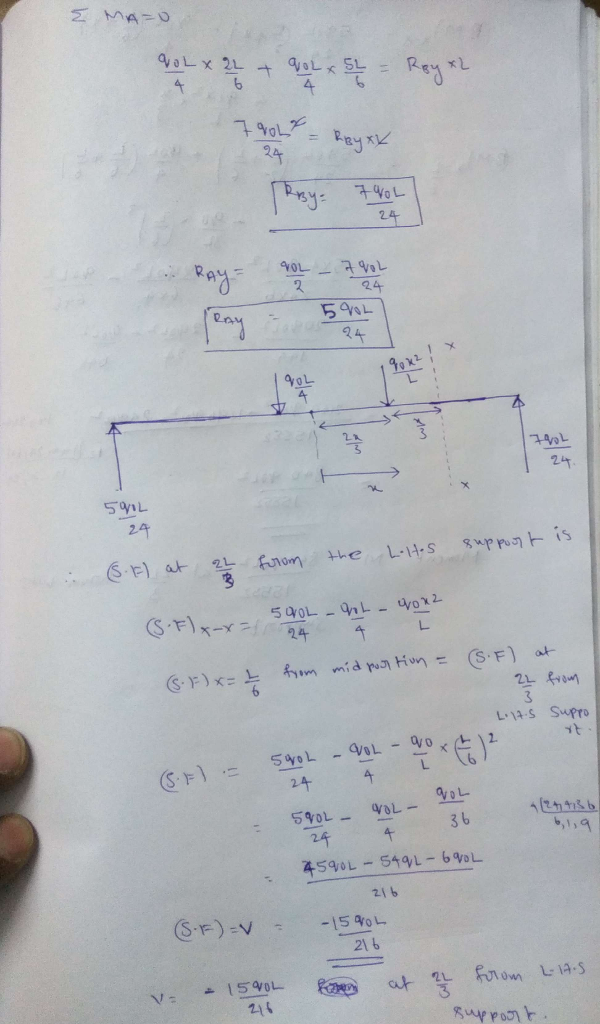 Σ MA=0
q0L/4 × 2L/6 + q0L/4 × 5L/6 = RBy × L
7q0L²/24 = RBy × L
RBy = 7q0L/24
∴ RAy = q0L/2 − 7q0L/24
RAy = 5q0L/24
q0L/4 q0x²/L x
2x/3 x/3
x x
5q0L/24 7q0L/24.
∴ (S.F) at 2L/3 from the L.H.S support is
(S.F)x-x = 5q0L/24 − q0L/4 − q0x²/L
(S.F) x = L/6 from mid portion = (S.F) at
2L/3 from
L.H.S Suppo
rt.
(S.F) = 5q0L/24 − q0L/4 − q0/L × (L/6)²
= 5q0L/24 − q0L/4 − q0L/36
4|24,4,36
6,1,9
= 45q0L − 54qL − 6q0L / 216
(S.F) = V = −15q0L/216
V = −15q0L/216 at 2L/3 from L.H.S
support.